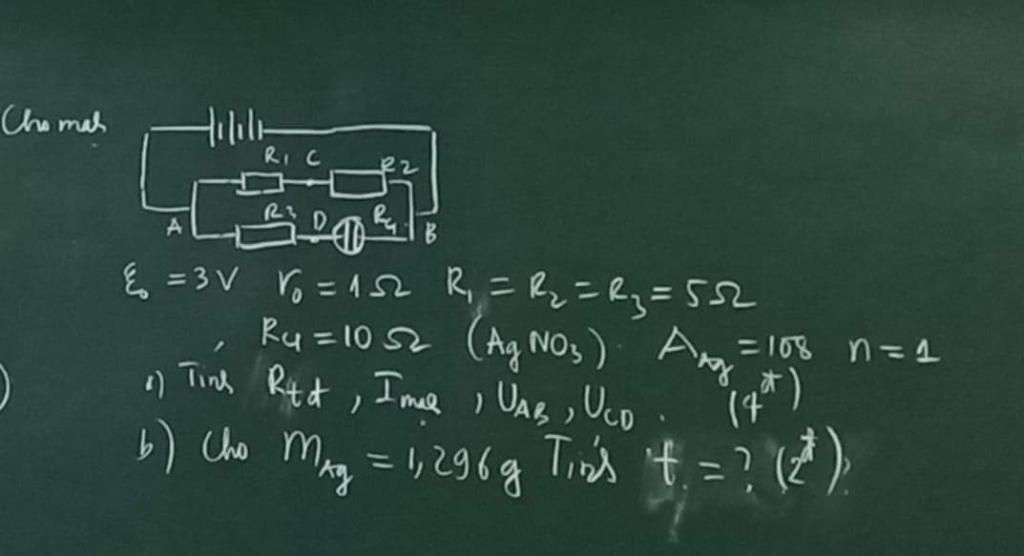 Cho mạch
R1 C R2
A R3 D R4 B
ℰ₀ = 3V r₀ = 1Ω R₁ = R₂ = R₃ = 5Ω
R4 = 10Ω (AgNO₃). A_Ag = 108 n = 1
a) Tính Rtđ, I mạch, U_AB, U_CD. (4đ)
b) Cho m_Ag = 1,296g Tính t = ? (2đ)